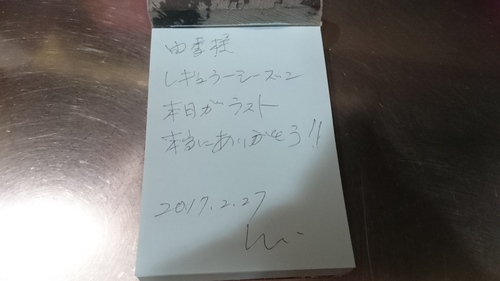 由香様
レギュラーシーズン
本日がラスト
本当にありがとう!!
2017.2.27